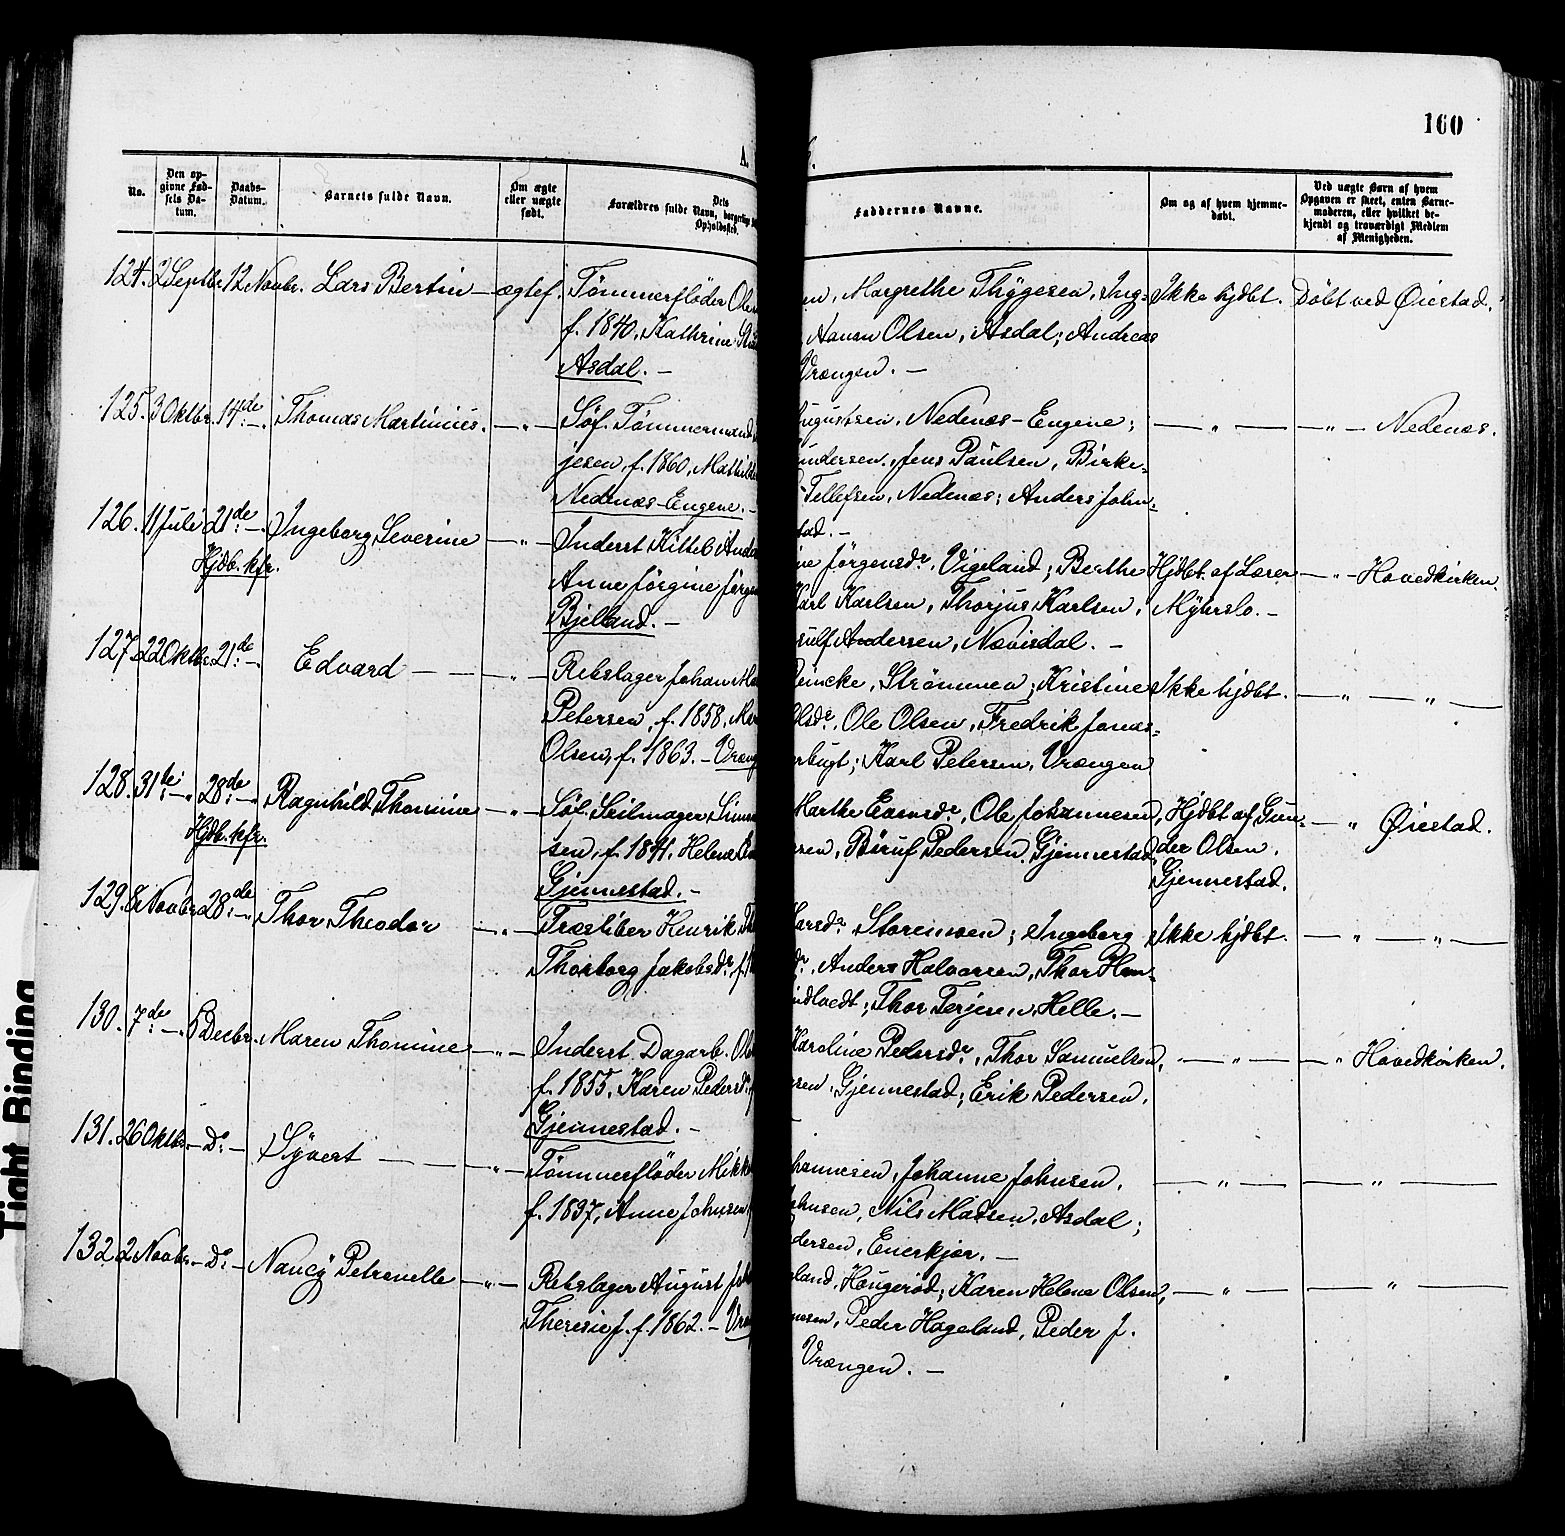 160
A.
No.
Den op-
givne Fød-
sels Da-
tum.
Daabs-
Datum.
Barnets fulde Navn.
Om ægte
eller uægte
født.
Dets
Forældres fulde Navn, borgerlige
Opholdssted.
Faddernes Navne.
Om og af hvem hjemme-
døbt.
Ved uægte Børn af hvem
Opgaven er skeet, enten Barne-
moderen, eller hvilket be-
kjendt og troværdigt Medlem
af Menigheden.
124. 2 Septbr. 12 Novbr. Lars Bertin — ægtef. Tømmerfløder Ole
f. 1840, Kathrine
Asdal. —
en, Margrethe Thygesen, Ing=
, Hanan Olsen, Asdal; Andreas
Vrængen. —
Ikke hjdbt. Døbt ved Øiestad.
125. 3 Oktbr. 14de — Thomas Martinius. — " — Søf. Tømmermand
jesen, f. 1860, Mathilde
Nedenæs-Engene. —
ugustsen, Nedenæs-Engene;
undersen, Jens Paulsen, Birke=
Tellefsen, Nedenæs; Anders John=
tad. —
— " — — " — Nedenæs.
126. 11 Juli 21de — Ingeborg Severine — " — Inderst Kittel
Hjdb. kfr.
Anne Jørgine
Bjelland. —
ne Jørgensdr, Vigeland; Berthe
Karl Karlsen, Thorjus Karlsen,
ulf Andersen, Nævisdal. —
Hjdbt. af Lærer
Myhrslo. —
— " — Hovedkirken.
127. 22 Oktbr. 21de — Edvard — — " — Rebslager Johan
Petersen, f. 1858,
Olsen, f. 1863. — Vræng
Reincke, Strømmen; Kristine
Olsdr, Ole Olsen, Fredrik Jonas=
erbugt; Karl Petersen, Vrængen
Ikke hjdbt. — " — " —
128. 31te — " 28de — " Ragnhild Thomine — " — Søf. Seilmager
Hjdb. kfr.
sen, f. 1841, Helene
Gjennestad. —
Marthe Evensdr, Ole Johannesen,
sen, Børuf Pedersen, Gjennestad,
Hjdbt af Gun=
der Olsen,
Gjennestad.
— " Øiestad.
129. 8 Novbr. 28de — " Thor Theodor — " — Træsliber Henrik
Thorborg Jakobsdr f.
Storemoen; Ingeborg
dr, Anders Halvorsen, Thor Hen=
; Thor Terjesen, Helle. —
Ikke hjdbt. — " — " —
130. 7de — " 5 Decbr. Maren Thomine — " — Inderst, Dagarb.
f. 1855, Karen Pedersdr
Gjennestad. —
Karoline Pedersdr, Thor Samuelsen,
sen, Gjennestad; Erik Pedersen,
—
— " — — " Hovedkirken.
131. 26 Oktbr. — Do — Syvert — — " — Tømmerfløder Mikk
f. 1837, Anne Johnsen
hannesen, Johanne Johnsen,
ohnsen, Nils Madsen, Asdal;
dersen, Enerkjær. —
— " — — " —
132. 2 Novbr. — Do — Nancy Petronelle — " — Rebslager August
Theresie J. f. 1862. —
eland, Haugerød; Karen Helene Olsen,
nsen, Peder Hageland, Peder J.
Vrængen. —
— " — — " —
Tight Binding